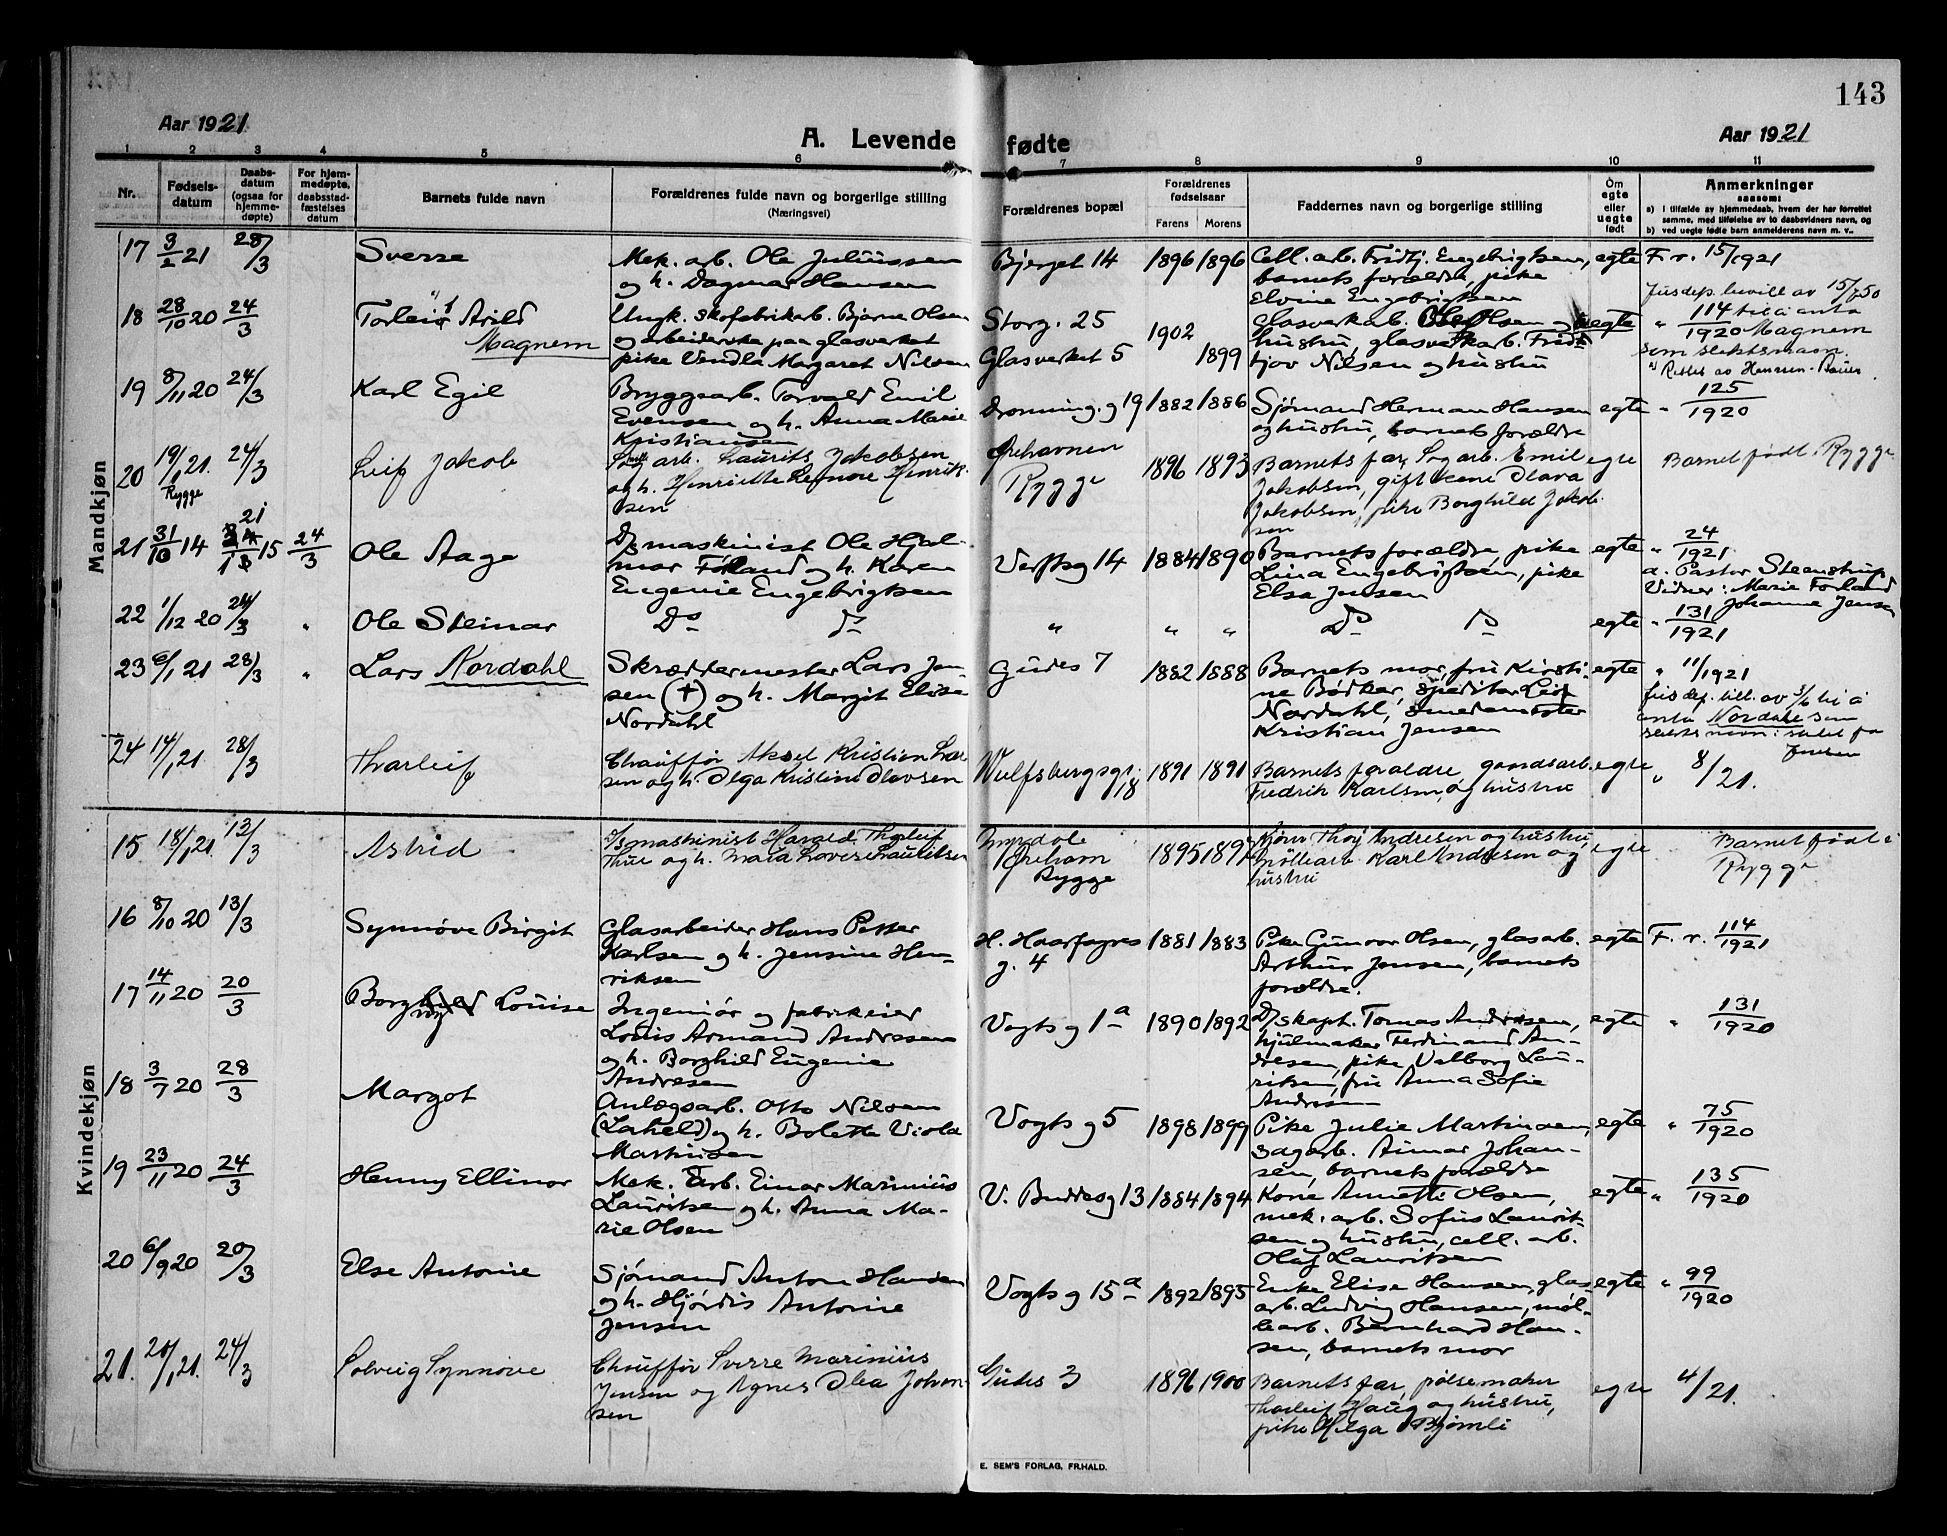 143
Aar 1921
A. Levende fødte
Aar 1921
1 2 3 4 5 6 7 8 9 10 11
Nr.
Fødsels-
datum
Daabs-
datum
(ogsaa for
hjemme-
døpte)
For hjem-
medøpte,
daabsstad-
fæstelses
datum
Barnets fulde navn
Forældrenes fulde navn og borgerlige stilling
(Næringsvei)
Forældrenes bopæl
Forældrenes
fødselsaar
Farens Morens
Faddernes navn og borgerlige stilling
Om
egte
eller
uegte
født
Anmerkninger
saasom:
a) I tilfælde av hjemmedaab, hvem der har forrettet
samme, med tilføielse av to daabsvidners navn, og
b) ved uegte fødte barn anmelderens navn m. v..
Mandkjøn
17 3/2 21 28/3 Sverre
Mek. arb. Ole Juliussen
og h. Dagmar Hansen
Bjerget 14 1896 1896
Cell. arb. Fridtj. Engebrigtsen,
barnets forældre, pike
Elvine Engebrigtsen
egte F. r. 15/1921
18 28/10 20 24/3 Torleif Arild
Magnem
Ungk. skofabrikarb. Bjarne Olsen
og arbeiderske paa glasverket
pike Vendla Margaret Nilsen
Storg. 25
Glasverket 5
1902
1899
Glasverkarb. Olsen og
hustru, glasverkarb. Fridt
tjov Nilsen og hustru
uegte
Jusdep. bevill av 15/7 50
" 114/1920 til å anta
Magnem
som slektsnavn.
19 8/11 20 24/3 Karl Egil
Bryggearb. Torvald Emil
Evensen og h. Anna Marie
Kristiansen
Dronning. g 19 1882 1886
Sjømand Herman Hansen
og hustru, barnets forældre
egte " 125/1920
20 19/1 21. 24/3 Leif Jakob
Rygge
arb. Laurits Jakobsen
og h. Henriette Lenore Henrik-
sen
Ørehavnen
Rygge
1896 1893
Barnets far, Sagarb. Emil
Jakobsen, gift kone Olava
Jakobsen, pike Borghild Jakob-
sen
egte Barnet født i Rygge
21 31/10 14 21/1 15 24/3 Ole Aage
D/s maskinist Ole Hjal-
mar Førland og h. Karen
Eugenie Engebrigtsen
Verftsg 14 1884 1890
Barnets forældre, pike
Lina Engebrigtsen, pike
Elsa Jensen
egte " 24/1921
a. Pastor Steenstrup
Vidner: Marie Forland
Johanne Jensen
22 1/12 20 24/3 " Ole Steinar
Do do
" " "
Do do
egte " 131/1921
23 6/1 21 28/3 " Lars Nordahl
Skræddermester Lars Jen-
sen (+) og h. Margit Elise
Nordahl
Gudes 7 1882 1888
Barnets mor, fru Kirsti-
ne Bødker, speditør Leif
Nordahl, smedemester
Kristian Jensen
egte " 11/1921
jusdep. till. av 3/6 til å
anta Nordahl som
slektsnavn i stedet for
Jensen
24 14/1 21 28/3 Thorleif
Chauffør Aksel Kristian Lar-
sen og h. Olga Kristine Olavsen
Wulfsbergsgt. 18 1891 1891
Barnets forældre, gaardsarb.
Fredrik Karlsen og hustru
egte " 8/21.
Kvindekjøn
15 18/1 21. 13/3 Astrid
D/s maskinist Harald Thorleif
Thue og h. Maia Lovise Lauritsen
Myrdole
Ørehavn
Rygge
1895
Andresen og hustru,
møllearb. Karl Andresen og
hustru
egte Barnet født i
Rygge
16 8/10 20 13/3 Synnøve Birgit
Glasarbeider Hans Petter
Karlsen og h. Jensine Hen-
riksen
H. Haarfagres
g. 4
1881 1883
Pike Gunvor Olsen, glasarb.
Arthur Jensen, barnets
forældre.
egte F. r. 114/1921
17 14/11 20 20/3 Borghild Louise
Ingeniør og fabrikeier
Louis Armand Andresen
og h. Borghild Eugenie
Andresen
Vogts g 1a 1890 1892
D/skapt. Tomas Andresen,
hjulmaker Ferdinand An-
dresen, pike Valborg Lau-
riksen, fru Anna Sofie
Andresen
egte " 131/1920
18 3/7 20 28/3 Margot
Anlægsarb. Otto Nilsen
(Lakeld) og h. Bolette Viola
Martinsen
Vogts g 5 1898 1899
Pike Julie Martinsen,
sagarb. Ainar Johan-
sen, barnets forældre
egte " 75/1920
19 23/11 20 24/3 Henny Ellinor
Mek. arb. Einar Marinius
Lauritsen og h. Anna Ma-
rie Olsen
V. Buddesg 13 1884 1894
Kone Annette Olsen,
mek. arb. Sofus Laurit-
sen og hustru, cell. arb.
Olaf Lauritsen
egte " 135/1920
20 6/9 20 20/3 Else Antonie
Sjømand Anton Hansen
og h. Hjørdis Antonie
Jensen
Vogts g 15a 1892 1895
Enke Elise Hansen, glas-
arb. Ludvig Hansen, møl-
learb. Bernhard Han-
sen, barnets mor
egte " 99/1920
21. 20/1 21. 24/3 Solveig Synnøve
Chauffør Sverre Marinius
Jensen og Agnes Olea Johan-
sen
Gudes 3 1896 1900
Barnets far, pølsemaker
Thorleif Haug og hustru,
pike Helga Bjømli
egte 4/21.
E. SEM'S FORLAG, FR.HALD.